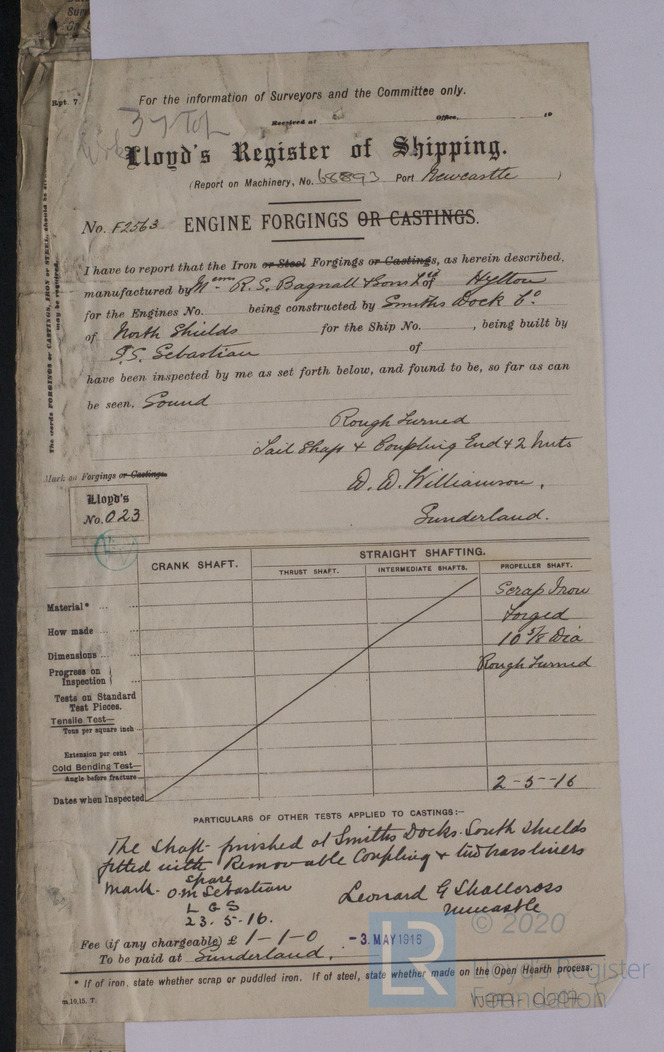 Rpt. 7.
For the information of Surveyors and the Committee only.
37 Top
Received at Office, 19
Lloyd's Register of Shipping.
(Report on Machinery, No. 68893 Port Newcastle )
No. F2563 ENGINE FORGINGS OR CASTINGS.
The words FORGINGS or CASTINGS, IRON or STEEL, should be
may be required.
I have to report that the Iron or Steel Forgings or Castings, as herein described,
manufactured by Messrs R. S. Bagnall & Sons Ltd of Hylton
for the Engines No. being constructed by Smiths Dock Co.
of North Shields for the Ship No. , being built by
S.S. Sebastian of
have been inspected by me as set forth below, and found to be, so far as can
be seen, Sound
Rough Turned
Tail Shaft & Coupling End & 2 Nuts
Mark on Forgings or Castings.
D. D. Williamson,
Lloyd's
No. 023
Sunderland.
CRANK SHAFT.
STRAIGHT SHAFTING.
THRUST SHAFT. INTERMEDIATE SHAFTS. PROPELLER SHAFT.
Material* Scrap Iron
How made Forged
Dimensions 10 5/8 Dia
Progress on
Inspection Rough Turned
Tests on Standard
Test Pieces.
Tensile Test—
Tons per square inch
Extension per cent
Cold Bending Test—
Angle before fracture
Dates when Inspected 2-5-16
PARTICULARS OF OTHER TESTS APPLIED TO CASTINGS:—
The shaft finished at Smiths Docks South Shields
fitted with Removable Coupling & two brass liners
Mark - Spare
O.M Sebastian
L G S
23. 5. 16.
Leonard G Shallcross
Newcastle
Fee (if any chargeable) £ 1-1-0
-3. MAY 1916
To be paid at Sunderland.
* If of iron, state whether scrap or puddled iron. If of steel, state whether made on the Open Hearth process.
m.10,15. T.
LR
© 2020
Lloyd's Register
Foundation